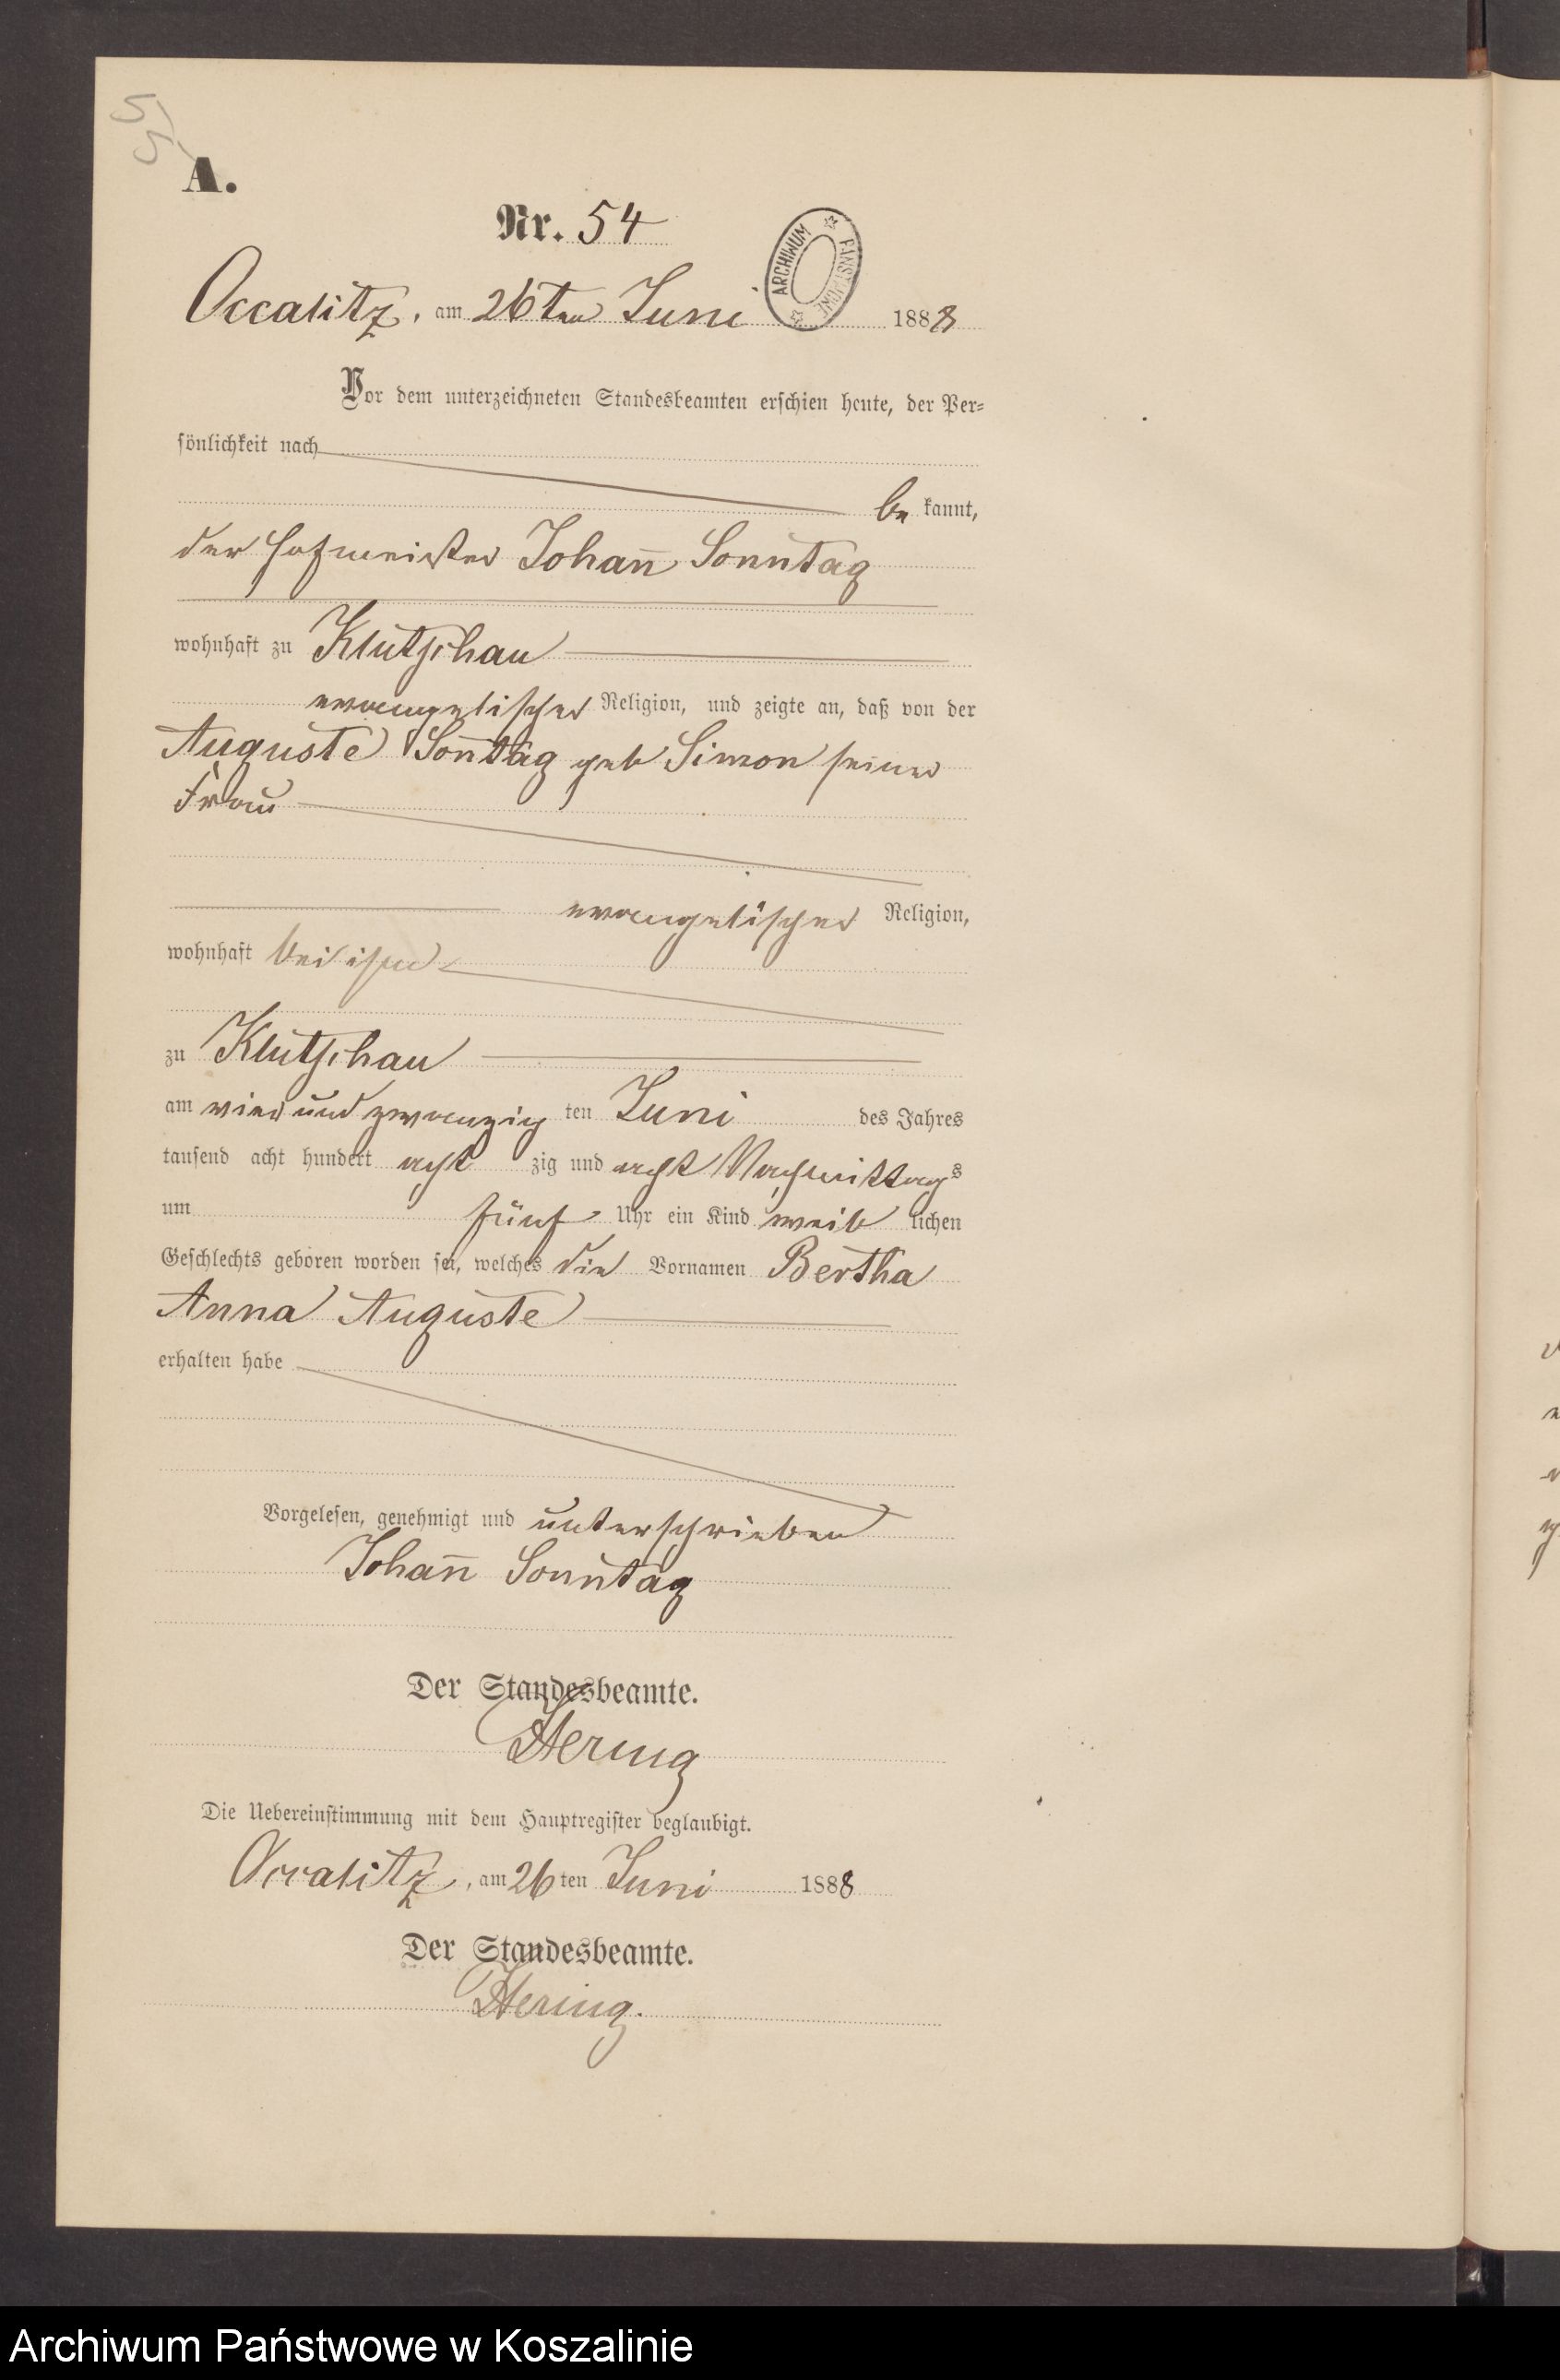 55
A.
Nr. 54
ARCHIWUM PAŃSTWOWE
Occalitz, am 26ten Juni 1888
Vor dem unterzeichneten Standesbeamten erschien heute, der Per=
sönlichkeit nach
be kannt,
der Hofmeister Johan̄ Sonntag
wohnhaft zu Klutschau
evangelischer Religion, und zeigte an, daß von der
Auguste Son̄tag geb Simon seiner
Frau
evangelischer Religion,
wohnhaft bei ihm
zu Klutschau
am vier und zwanzig ten Juni des Jahres
tausend acht hundert acht zig und acht Nachmittags
um fünf Uhr ein Kind weib lichen
Geschlechts geboren worden sei, welches die Vornamen Bertha
Anna Auguste
erhalten habe
Vorgelesen, genehmigt und unterschrieben
Johan̄ Sonntag
Der Standesbeamte.
Hering
Die Uebereinstimmung mit dem Hauptregister beglaubigt.
Occalitz, am 26 ten Juni 1888
Der Standesbeamte.
Hering.
Archiwum Państwowe w Koszalinie